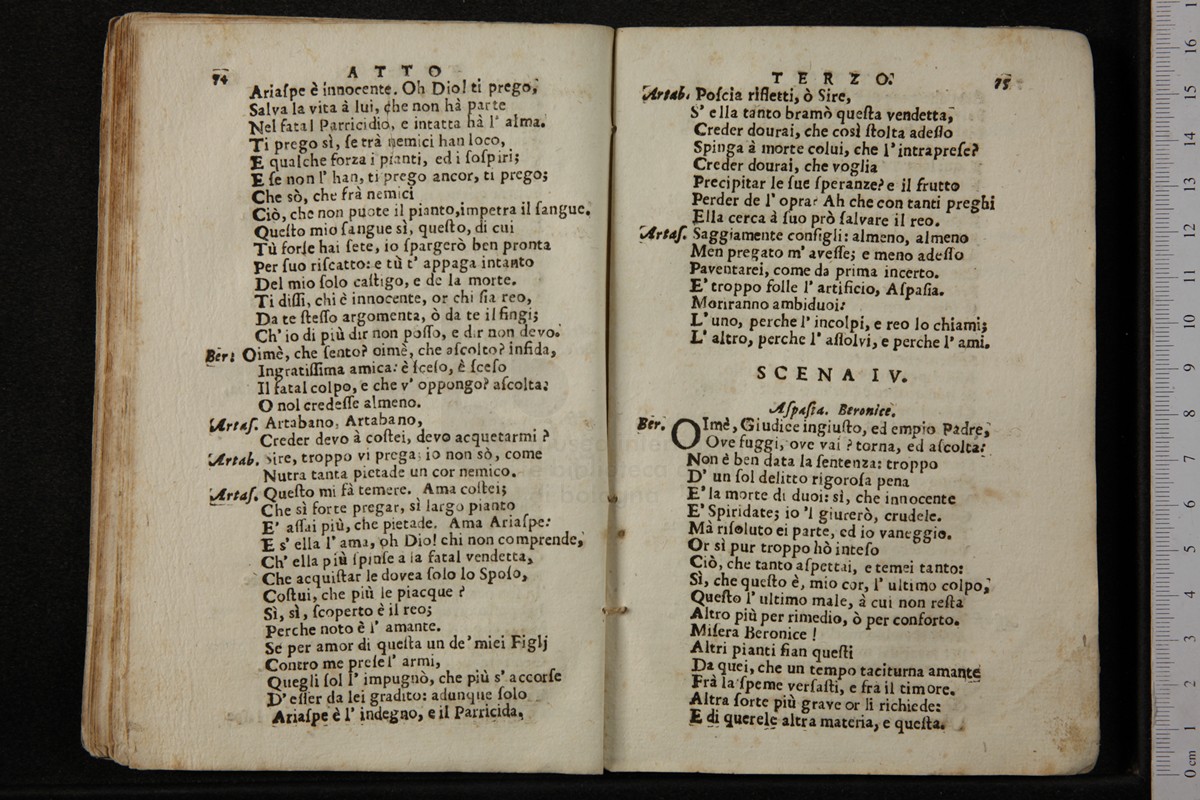 74
ATTO
Ariaſpe è innocente. Oh Dio! ti prego,
Salva la vita à lui, che non hà parte
Nel fatal Parricidio, e intatta hà l' alma.
Ti prego sì, ſe trà nemici han loco,
E qualche forza i pianti, ed i ſoſpiri;
E ſe non l' han, ti prego ancor, ti prego;
Che sò, che frà nemici
Ciò, che non puote il pianto, impetra il ſangue.
Queſto mio ſangue sì, queſto, di cui
Tù forſe hai ſete, io ſpargerò ben pronta
Per ſuo riſcatto: e tù t' appaga intanto
Del mio ſolo caſtigo, e de la morte.
Ti diſſi, chi è innocente, or chi ſia reo,
Da te ſteſſo argomenta, ò da te il fingi;
Ch' io di più dir non poſſo, e dir non devo.
Ber: Oimè, che ſento? oimè, che aſcolto? infida,
Ingratiſſima amica: è ſceſo, è ſceſo
Il fatal colpo, e che v' oppongo? aſcolta:
O nol credeſſe almeno.
Artaſ. Artabano, Artabano,
Creder devo à coſtei, devo acquetarmi ?
Artab. Sire, troppo vi prega: io non sò, come
Nutra tanta pietade un cor nemico.
Artaſ. Queſto mi fà temere. Ama coſtei;
Che sì forte pregar, sì largo pianto
E' aſſai più, che pietade. Ama Ariaſpe:
E s' ella l' ama, oh Dio! chi non comprende,
Ch' ella più ſpinſe a la fatal vendetta,
Che acquiſtar le dovea ſolo lo Spoſo,
Coſtui, che più le piacque ?
Sì, sì, ſcoperto è il reo;
Perche noto è l' amante.
Se per amor di queſta un de' miei Figlj
Contro me preſe l' armi,
Quegli ſol l' impugnò, che più s' accorſe
D' eſſer da lei gradito: adunque ſolo
Ariaſpe è l' indegno, e il Parricida,
TERZO.
75
Artab. Poſcia rifletti, ò Sire,
S' ella tanto bramò queſta vendetta,
Creder dourai, che così ſtolta adeſſo
Spinga à morte colui, che l' intrapreſe?
Creder dourai, che voglia
Precipitar le ſue ſperanze? e il frutto
Perder de l' opra? Ah che con tanti preghi
Ella cerca à ſuo prò ſalvare il reo.
Artaſ. Saggiamente configli: almeno, almeno
Men pregato m' aveſſe; e meno adeſſo
Paventarei, come da prima incerto.
E' troppo folle l' artificio, Aſpaſia.
Moriranno ambiduoi:
L' uno, perche l' incolpi, e reo lo chiami;
L' altro, perche l' aſſolvi, e perche l' ami.
SCENA IV.
Aſpaſia. Beronice.
Ber. OImè, Giudice ingiuſto, ed empio Padre,
Ove fuggi, ove vai ? torna, ed aſcolta:
Non è ben data la ſentenza: troppo
D' un ſol delitto rigoroſa pena
E' la morte di duoi: sì, che innocente
E' Spiridate; io 'l giurerò, crudele.
Mà riſoluto ei parte, ed io vaneggio.
Or sì pur troppo hò inteſo
Ciò, che tanto aſpettai, e temei tanto:
Sì, che queſto è, mio cor, l' ultimo colpo,
Queſto l' ultimo male, à cui non reſta
Altro più per rimedio, ò per conforto.
Miſera Beronice !
Altri pianti ſian queſti
Da quei, che un tempo taciturna amante
Frà la ſpeme verſaſti, e fra il timore.
Altra ſorte più grave or li richiede:
E di querele altra materia, e queſta.
0 cm 1 2 3 4 5 6 7 8 9 10 11 12 13 14 15 16